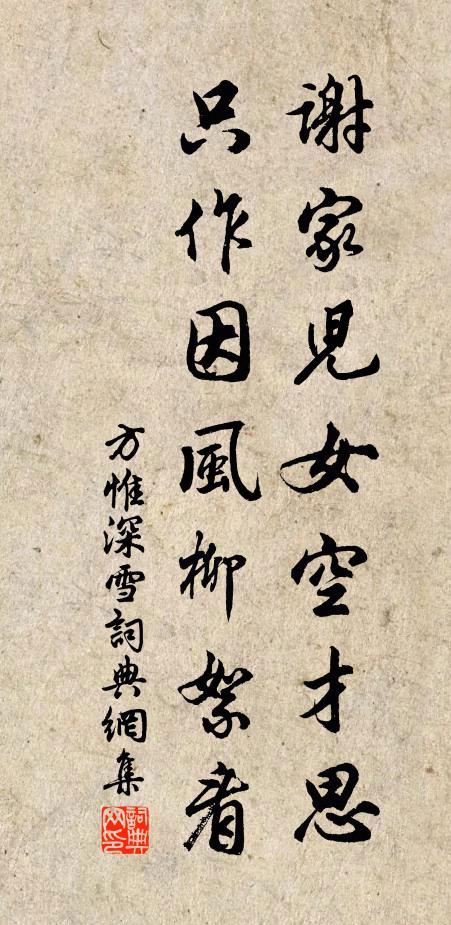 謝家児女空才思
只作因風柳絮看
方惟深雪詞典網集
詞典網印